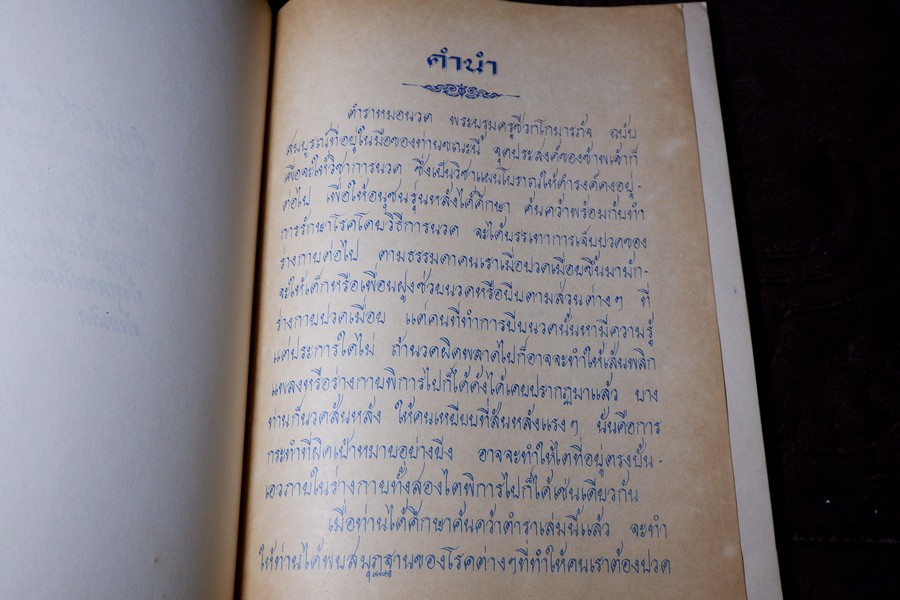 คำนำ
ตำราหมอนวด พระบรมครูชีวกโกมารภัจ ฉบับ
สมบูรณ์ที่อยู่ในมือของท่านขณะนี้ จุดประสงค์ของข้าพเจ้าก็
เพื่อจะให้วิชาการนวด ซึ่งเป็นวิชาแผนโบราณให้ดำรงค์คงอยู่-
ต่อไป เพื่อให้อนุชนรุ่นหลังได้ศึกษา ค้นคว้าพร้อมกับทำ
การรักษาโรคโดยวิธีการนวด จะได้บรรเทาการเจ็บปวดของ
ร่างกายต่อไป ตามธรรมดาคนเราเมื่อปวดเมื่อยขึ้นมามัก-
จะให้เด็กหรือเพื่อนฝูงช่วยนวดหรือบีบตามส่วนต่างๆ ที่
ร่างกายปวดเมื่อย แต่คนที่ทำการบีบนวดนั้นหามีความรู้
แต่ประการใดไม่ ถ้านวดผิดพลาดไปก็อาจจะทำให้เส้นพลิก
แพลงหรือร่างกายพิการไปก็ได้ดังได้เคยปรากฏมาแล้ว บาง
ท่านก็นวดสันหลัง ให้คนเหยียบที่สันหลังแรงๆ นั่นคือการ
กระทำที่ผิดเป้าหมายอย่างยิ่ง อาจจะทำให้ไตที่อยู่ตรงบั้น-
เอวภายในร่างกายทั้งสองไตพิการไปก็ได้เช่นเดียวกัน
เมื่อท่านได้ศึกษาค้นคว้าตำราเล่มนี้แล้ว จะทำ
ให้ท่านได้พบสมุฏฐานของโรคต่างๆที่ทำให้คนเราต้องปวด